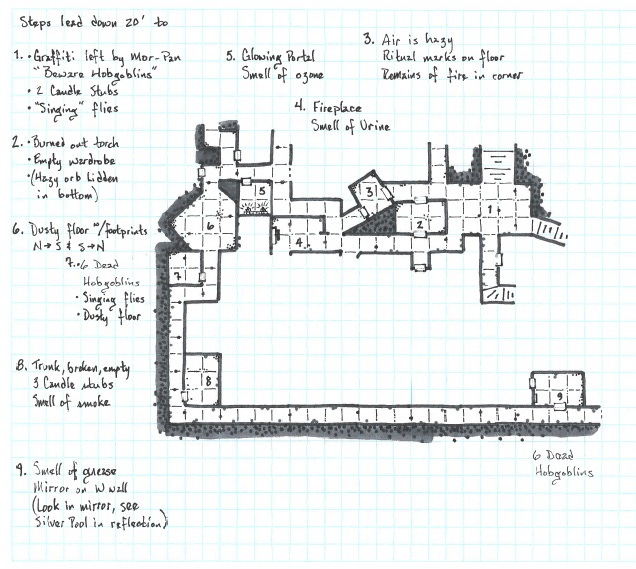 Steps lead down 20' to
1. • Graffiti left by Mor-Pan
"Beware Hobgoblins"
• 2 Candle Stubs
• "Singing" flies
5. Glowing Portal
Smell of ozone
3. Air is hazy
Ritual marks on floor
Remains of fire in corner
4. Fireplace
Smell of Urine
2. • Burned out torch
• Empty wardrobe
• (Hazy orb hidden
in bottom)
6. Dusty floor w/footprints
N→S & S→N
7. • 6 Dead
Hobgoblins
• Singing flies
• Dusty floor
8. Trunk, broken, empty
3 Candle stubs
Smell of smoke
9. Smell of grease
Mirror on W wall
(Look in mirror, see
Silver Pool in reflection)
6 Dead
Hobgoblins
5
3
6
2
1
4
7
8
9